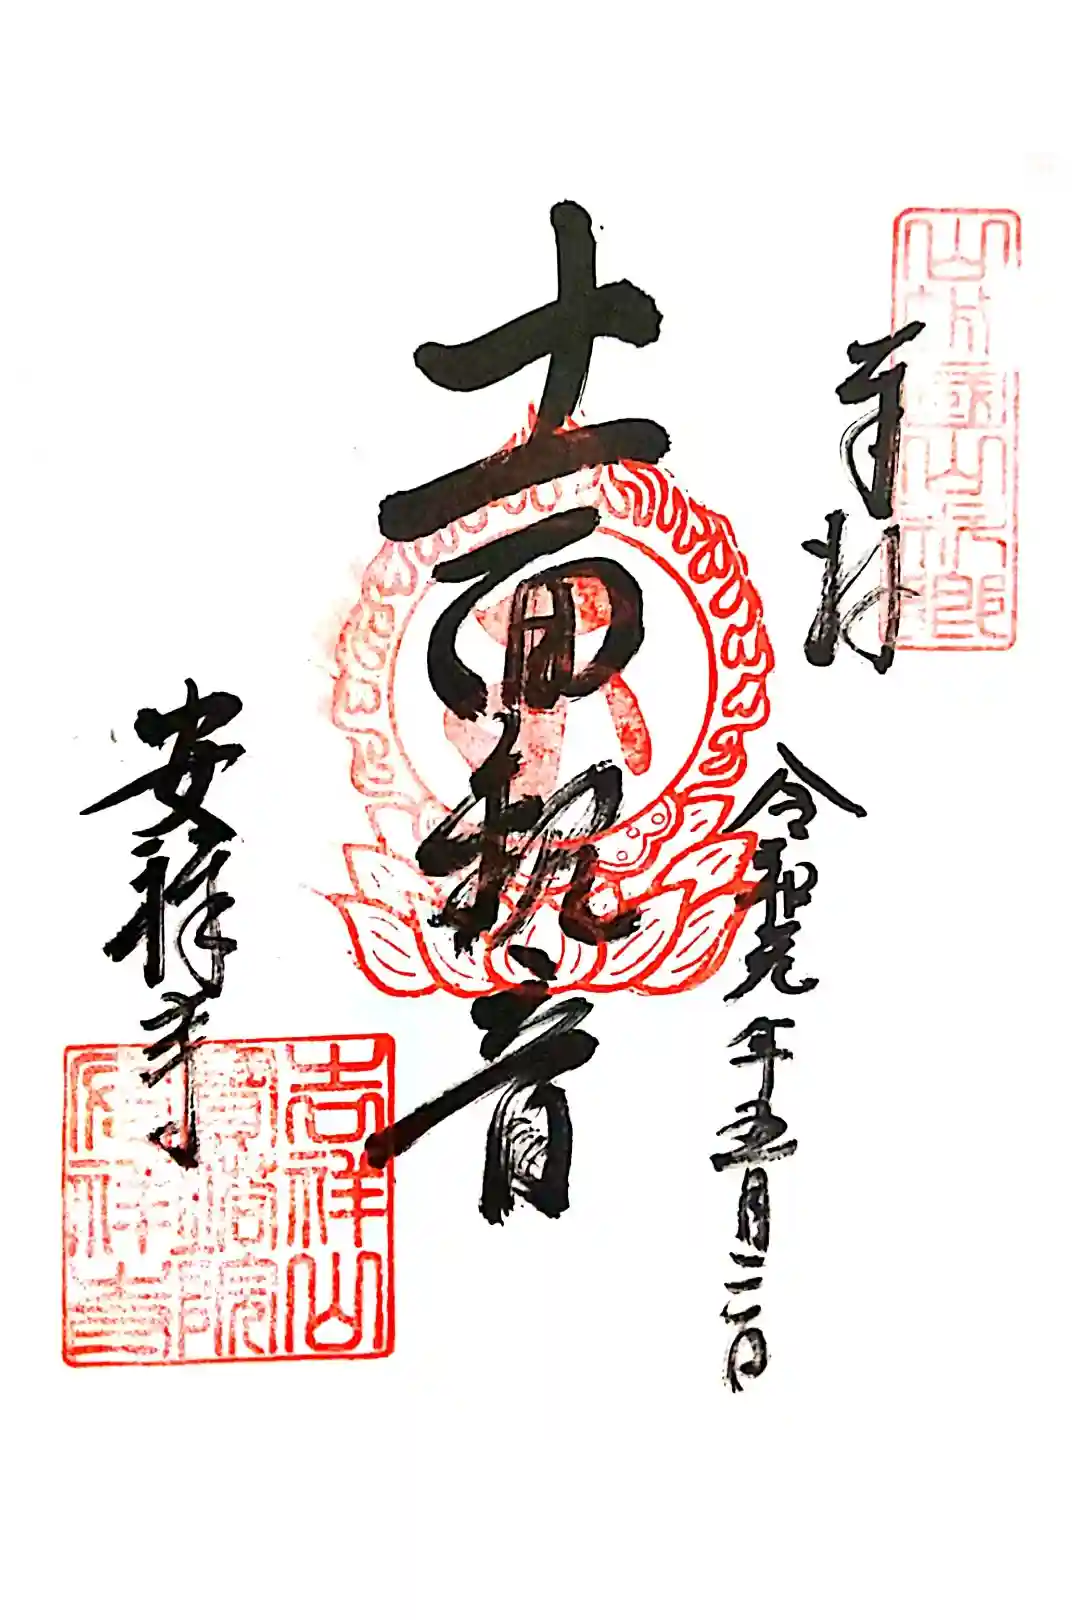 山城國山科郷
奉拝
令和元年五月三日
十一面観音
安祥寺
吉祥山
寳塔院
安祥寺